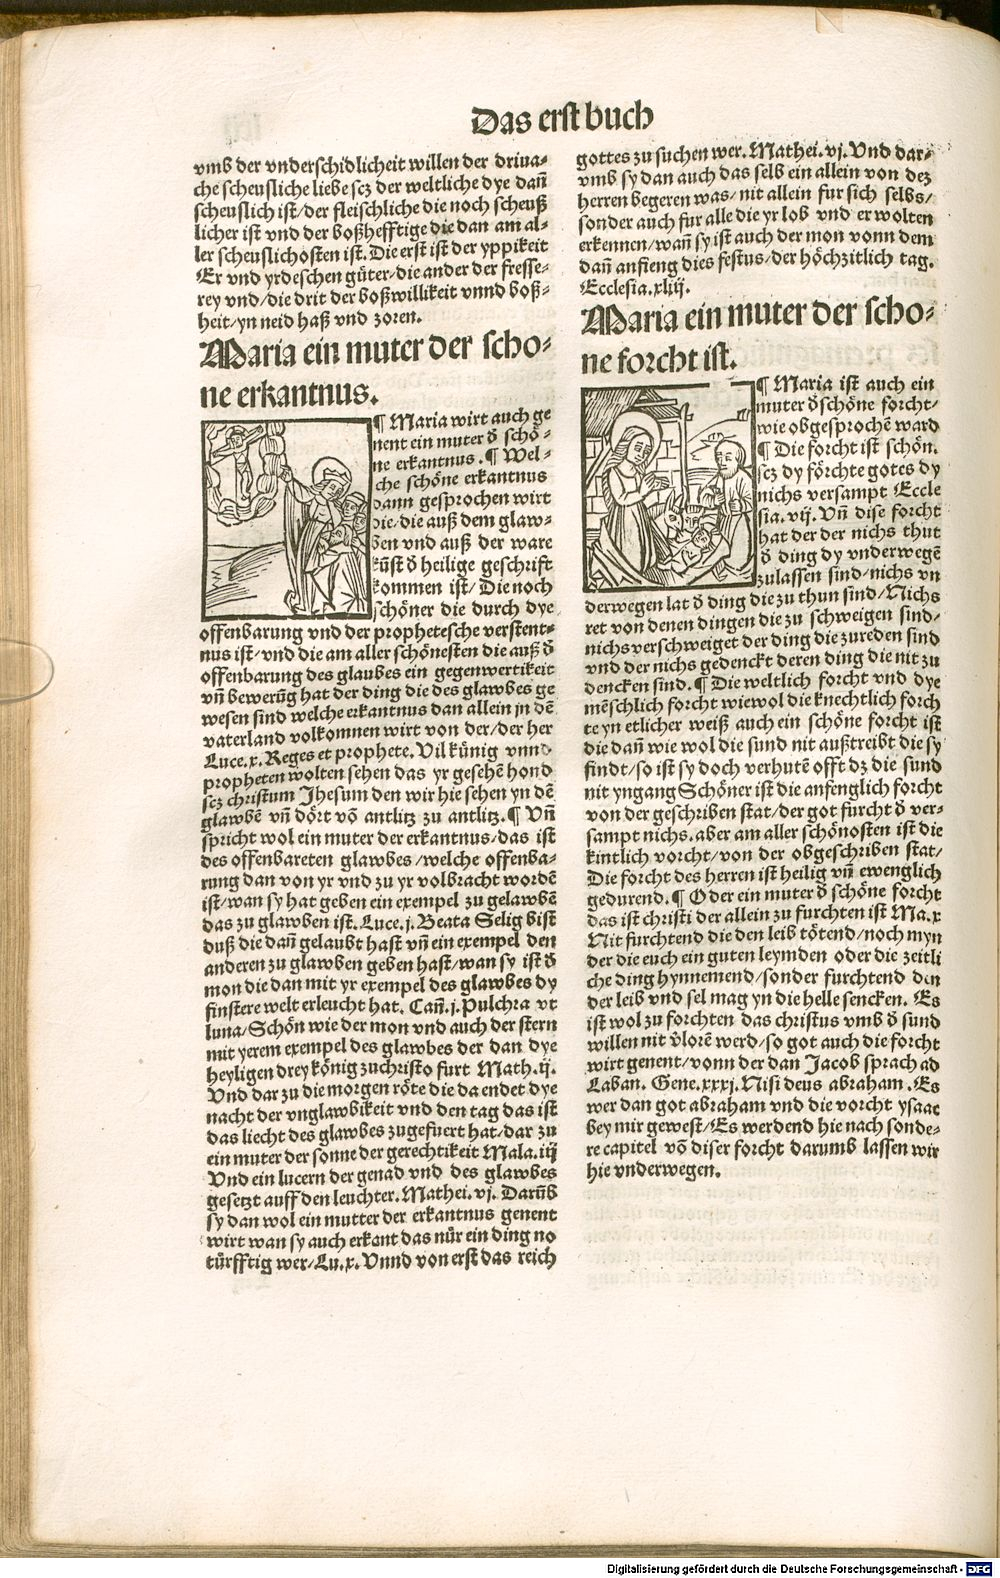 Das erst buch
vmb der vnderschidlicheit willen der driua⸗
che scheusliche liebe scz der weltliche dye dañ
scheuslich ist/der fleischliche die noch scheuß
licher ist vnd der boßhefftige die dan am al⸗
ler scheuslichosten ist. Die erst ist der yppikeit
Er vnd yrdeschen güter/die ander der fresse⸗
rey vnd/die drit der boßwillikeit vnnd boß⸗
heit/yn neid haß vnd zoren.
Maria ein muter der scho⸗
ne erkantnus.
¶ Maria wirt auch ge
nent ein muter d̄ schö⸗
ne erkantnus. ¶ Wel⸗
che schöne erkantnus
dann gesprochen wirt
die/die auß dem glaw⸗
ben vnd auß der ware
kũst d̄ heilige geschrift
kommen ist/Die noch
schöner die durch dye
offenbarung vnd der prophetesche verstent⸗
nus ist/vnd die am aller schönesten die auß d̄
offenbarung des glaubes ein gegenwertikeit
vñ bewerũg hat der ding die des glawbes ge
wesen sind welche erkantnus dan allein jn dẽ
vaterland volkomnen wirt von der/der her
Luce.x. Reges et prophete. Vil künig vnnd
propheten wolten sehen das yr gesehẽ hond
scz christum Jhesum den wir hie sehen yn dẽ
glawbẽ vñ dört võ antlitz zu antlitz. ¶ Vñ
spricht wol ein muter der erkantnus/das ist
des offenbareten glawbes/welche offenba⸗
rung dan von yr vnd zu yr volbracht wordẽ
ist/wan sy hat geben ein exempel zu gelawbẽ
das zu glawben ist. Luce.j. Beata Selig bist
duß die dañ gelaubt hast vñ ein exempel den
anderen zu glawben geben hast/wan sy ist d̄
mon die dan mit yr exempel des glawbes dy
finstere welt erleucht hat. Cañ.j. Pulchra vt
luna/Schön wie der mon vnd auch der stern
mit yerem exempel des glawbes der dan dye
heyligen drey könig zuchristo furt Math.ij.
Vnd dar zu die morgen röte die da endet dye
nacht der vnglawbikeit vnd den tag das ist
das liecht des glawbes zugefuert hat/dar zu
ein muter der sonne der gerechtikeit Mala.iij
Vnd ein lucern der genad vnd des glawbes
gesetzt auff den leuchter. Mathei.vj. Darũb
sy dan wol ein mutter der erkantnus genent
wirt wan sy auch erkant das nůr ein ding no
türfftig wer/Lu.x. Vnnd von erst das reich
gottes zu suchen wer. Mathei.vj. Vnd dar⸗
vmb sy dan auch das selb ein allein von dez
herren begeren was/nit allein fur sich selbs/
sonder auch fur alle die yr lob vnd er wolten
erkennen/wañ sy ist auch der mon vonn dem
dañ anfieng dies festus/der höchzitlich tag.
Ecclesia.xliij.
Maria ein muter der scho⸗
ne forcht ist.
¶ Maria ist auch ein
muter d̄ schöne forcht/
wie obgesprochẽ ward
¶ Die forcht ist schön.
scz dy förchte gotes dy
nichs versampt Eccle
sia.vij. Vñ dise forcht
hat der der nichs thut
d̄ ding dy vnderwegẽ
zulassen sind/nichs vn
derwegen lat d̄ ding die zu thun sind/Nichs
ret von denen dingen die zu schweigen sind/
nichs verschweiget der ding die zureden sind
vnd der nichs gedenckt deren ding die nit zu
dencken sind. ¶ Die weltlich forcht vnd dye
mẽschlich forcht wiewol die knechtlich forch
te yn etlicher weiß auch ein schöne forcht ist
die dañ wie wol die sund nit außtreibt die sy
findt/so ist sy doch verhutẽ offt dz die sund
nit yngang Schöner ist die anfenglich forcht
von der geschriben stat/der got furcht d̄ ver⸗
sampt nichs. aber am aller schönosten ist die
kintlich vorcht/von der obgeschriben stat/
Die forcht des herren ist heilig vñ ewenglich
gedurend. ¶ Oder ein muter d̄ schöne forcht
das ist christi der allein zu furchten ist Ma.x
Nit furchtend die den leib tötend/noch myn
der die euch ein guten leymden oder die zeitli
che ding hynnemend/sonder furchtend den
der leib vnd sel mag yn die helle sencken. Es
ist wol zu forchten das christus vmb d̄ sund
willen nit v̄lorẽ werd/so got auch die forcht
wirt genent/vonn der dan Jacob sprach ad
Laban. Gene.xxxj. Nisi deus abraham. Es
wer dan got abraham vnd die vorcht ysaac
bey mir gewest/Es werdend hie nach sonde⸗
re capitel võ diser forcht darumb lassen wir
hie vnderwegen.
Digitalisierung gefördert durch die Deutsche Forschungsgemeinschaft - DFG